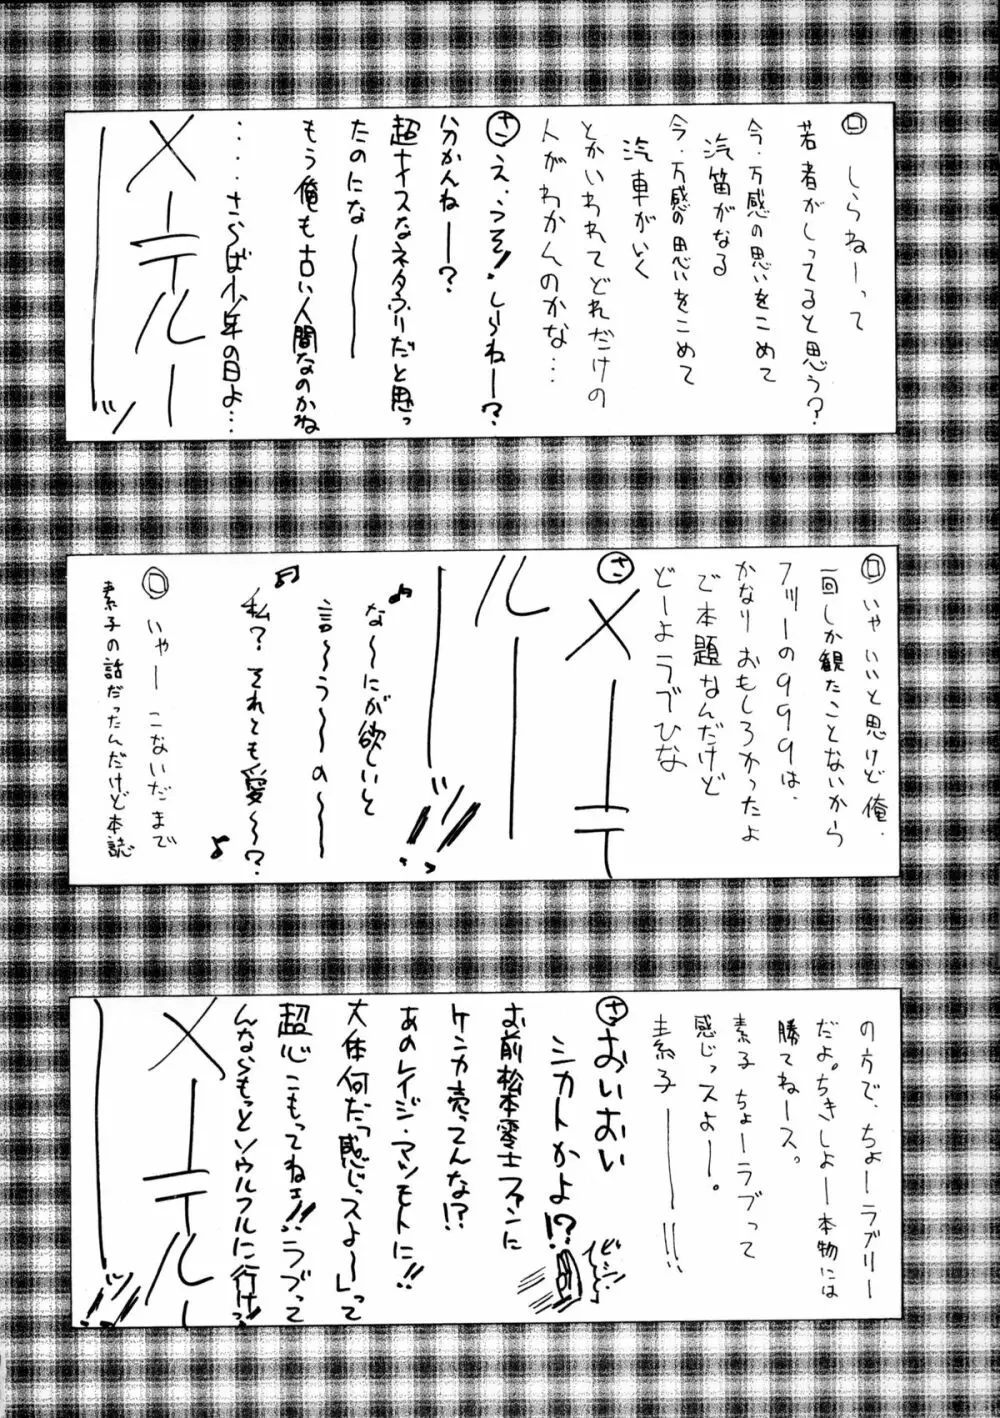 ロ しらねーって
若者がしってると思う?
今・万感の思いをこめて
汽笛がなる
今・万感の思いをこめて
汽車がいく
とかいわれてどれだけの
人がわかんのかな…
さ え、うそ!しらねー?
分かんねー?
超ナイスなネタふりだと思っ
たのにな〜
もう俺も古い人間なのかね
・・・・さらば少年の日よ…
メーテルー
ッ
ロ いや いいと思けど俺、
一回しか観たことないから
フツーの999は、
かなりおもしろかったよ
で本題なんだけど
どーよラブひな
さ メーテ
ルー
ッ!!
♪な〜にが欲しいと
言〜う〜の〜
♬私?それとも愛〜?♪
ロ いやー こないだまで
素子の話だったんだけど本誌
の方で、ちょーラブリー
だよ。ちきしょー本物には
勝てねース。
素子 ちょーラブって
感じっスよー。
素子ー!!
さ おいおい
シカトかよ!?
ビシ
お前松本零士ファンに
ケンカ売ってんな!?
あのレイジ・マツモトに!!
大体何だ「感じっスよ〜」って
超心こもってねェ!!ラブって
んならもっとソウルフルに行けっ!!
メーテルー
ッ!!